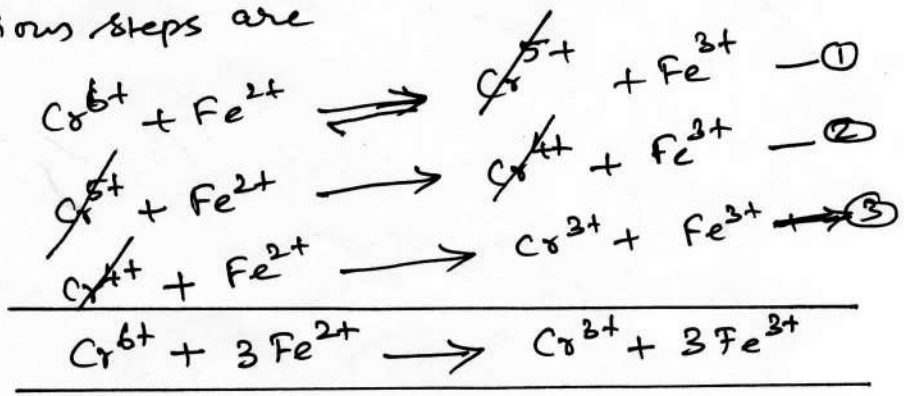 ious steps are
Cr⁶⁺ + Fe²⁺ ⇌ Cr⁵⁺ + Fe³⁺ —①
Cr⁵⁺ + Fe²⁺ ⟶ Cr⁴⁺ + Fe³⁺ —②
Cr⁴⁺ + Fe²⁺ ⟶ Cr³⁺ + Fe³⁺ —③
Cr⁶⁺ + 3Fe²⁺ ⟶ Cr³⁺ + 3Fe³⁺